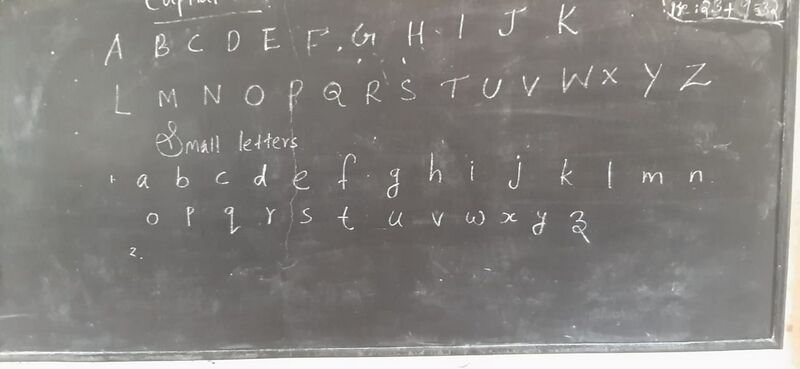 Capital
23+9=32
A B C D E F G H I J K
L M N O P Q R S T U V W X Y Z
Small letters
a b c d e f g h i j k l m n
o p q r s t u v w x y z
2.